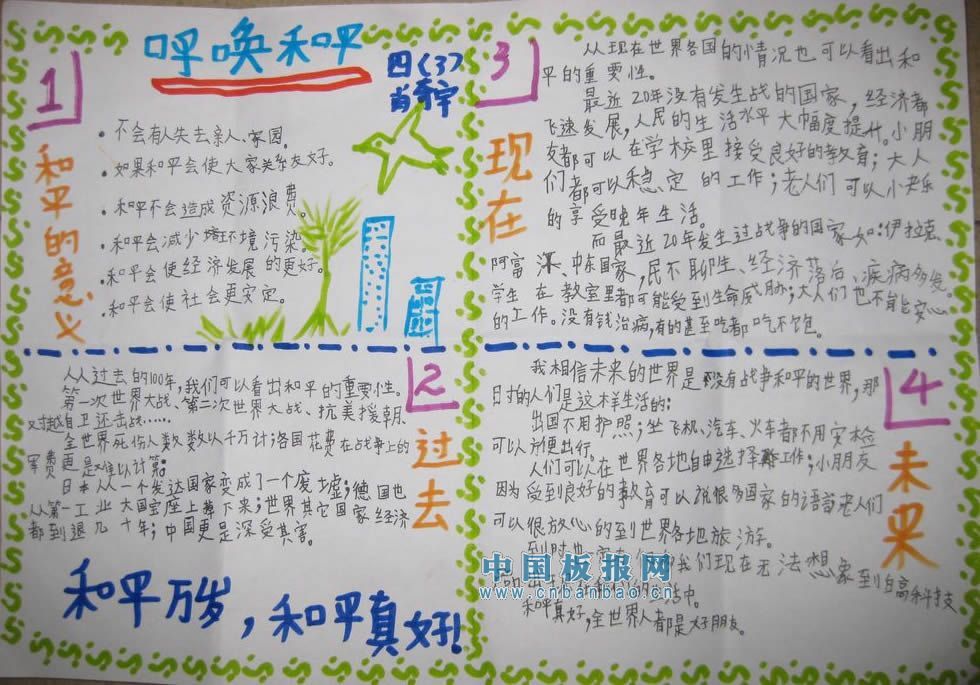 呼唤和平
四(3)
肖奇宇
1
和平的意义
· 不会有人失去亲人、家园。
· 如果和平会使大家关系友好。
· 和平不会造成资源浪费。
· 和平会减少环境污染。
· 和平会使经济发展的更好。
· 和平会使社会更安定。
2
过去
从从过去的100年,我们可以看出和平的重要性。
第一次世界大战、第二次世界大战、抗美援朝、
对越自卫还击战……
全世界死伤人数数以千万计;各国花费在战争上的
军费更是难以计算。
日本从一个发达国家变成了一个废墟;德国也
从第一工业大国宝座上摔下来;世界其它国家经济
都到退几十年;中国更是深受其害。
和平万岁,和平真好!
3
现在
从现在世界各国的情况也可以看出和
平的重要性。
最近20年没有发生战的国家,经济都
飞速发展,人民的生活水平大幅度提升。小朋
友都可以在学校里接受良好的教育;大人
们都可以稳定的工作;老人们可以
的享受晚年生活。
而最近20年发生过战争的国家如:伊拉克、
阿富汗、中东国家,民不聊生、经济落后、疾病多发。
学生在教室里都可能受到生命威胁;大人们也不能安心
的工作。没有钱治病,有的甚至吃都吃不饱。
4
未来
我相信未来的世界是没有战争和平的世界,那
时的人们是这样生活的:
出国不用护照;坐飞机、汽车、火车都不用安检
可以方便出行。
人们可以在世界各地自由选择工作;小朋友
因为受到良好的教育可以说很多国家的语言老人们
可以很放心的到世界各地旅游。
到时 我们现在无法想象到白高科技
活中。
和平真好,全世界人都是好朋友。
中国板报网
www.cnbanbao.cn